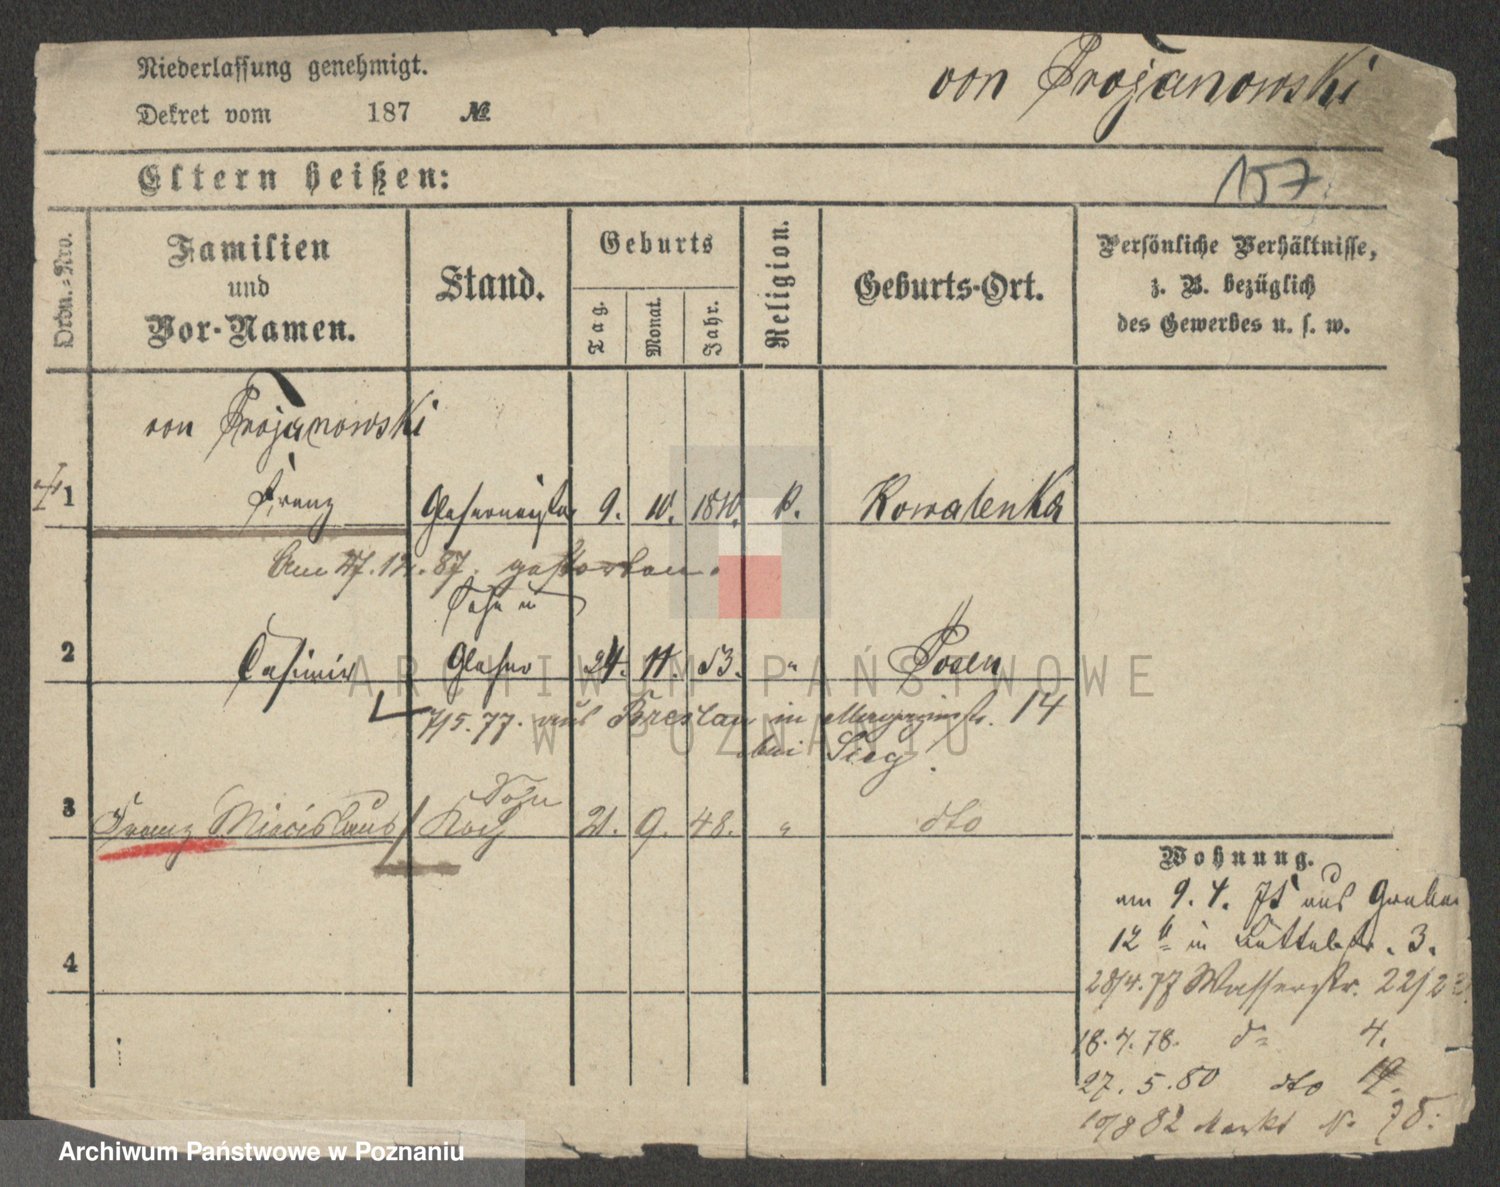 Niederlassung genehmigt.
von Trojanowski
Dekret vom 187 №
Eltern heißen:
157.
Ordn.-Nro.
Familien und Vor-Namen.
Stand.
Geburts
Tag.
Monat.
Jahr.
Religion.
Geburts-Ort.
Persönliche Verhältnisse,
z. B. bezüglich
des Gewerbes u. s. w.
von Trojanowski
1 Franz Glasermeister 9. 10. 1810. k. Kowalenka
Am 27.12.87. gestorben.
Sohn u
2 Casimir Glaser 24. 11. 53. " Posen
7/5.77. aus Breslau in Magazinstr. 14
bei Sieg.
Sohn
3 Franz Miecislaus Koch 21. 9. 48. " dto
4
Wohnung.
am 9. 4. 75 aus Graben
12 b in Büttelstr. 3.
28/4.77 Wasserstr. 22/23
18.4.78. do 4.
27. 5. 80 dto
10/8 82 Markt No 78.
ARCHIWUM PAŃSTWOWE
W POZNANIU
Archiwum Państwowe w Poznaniu